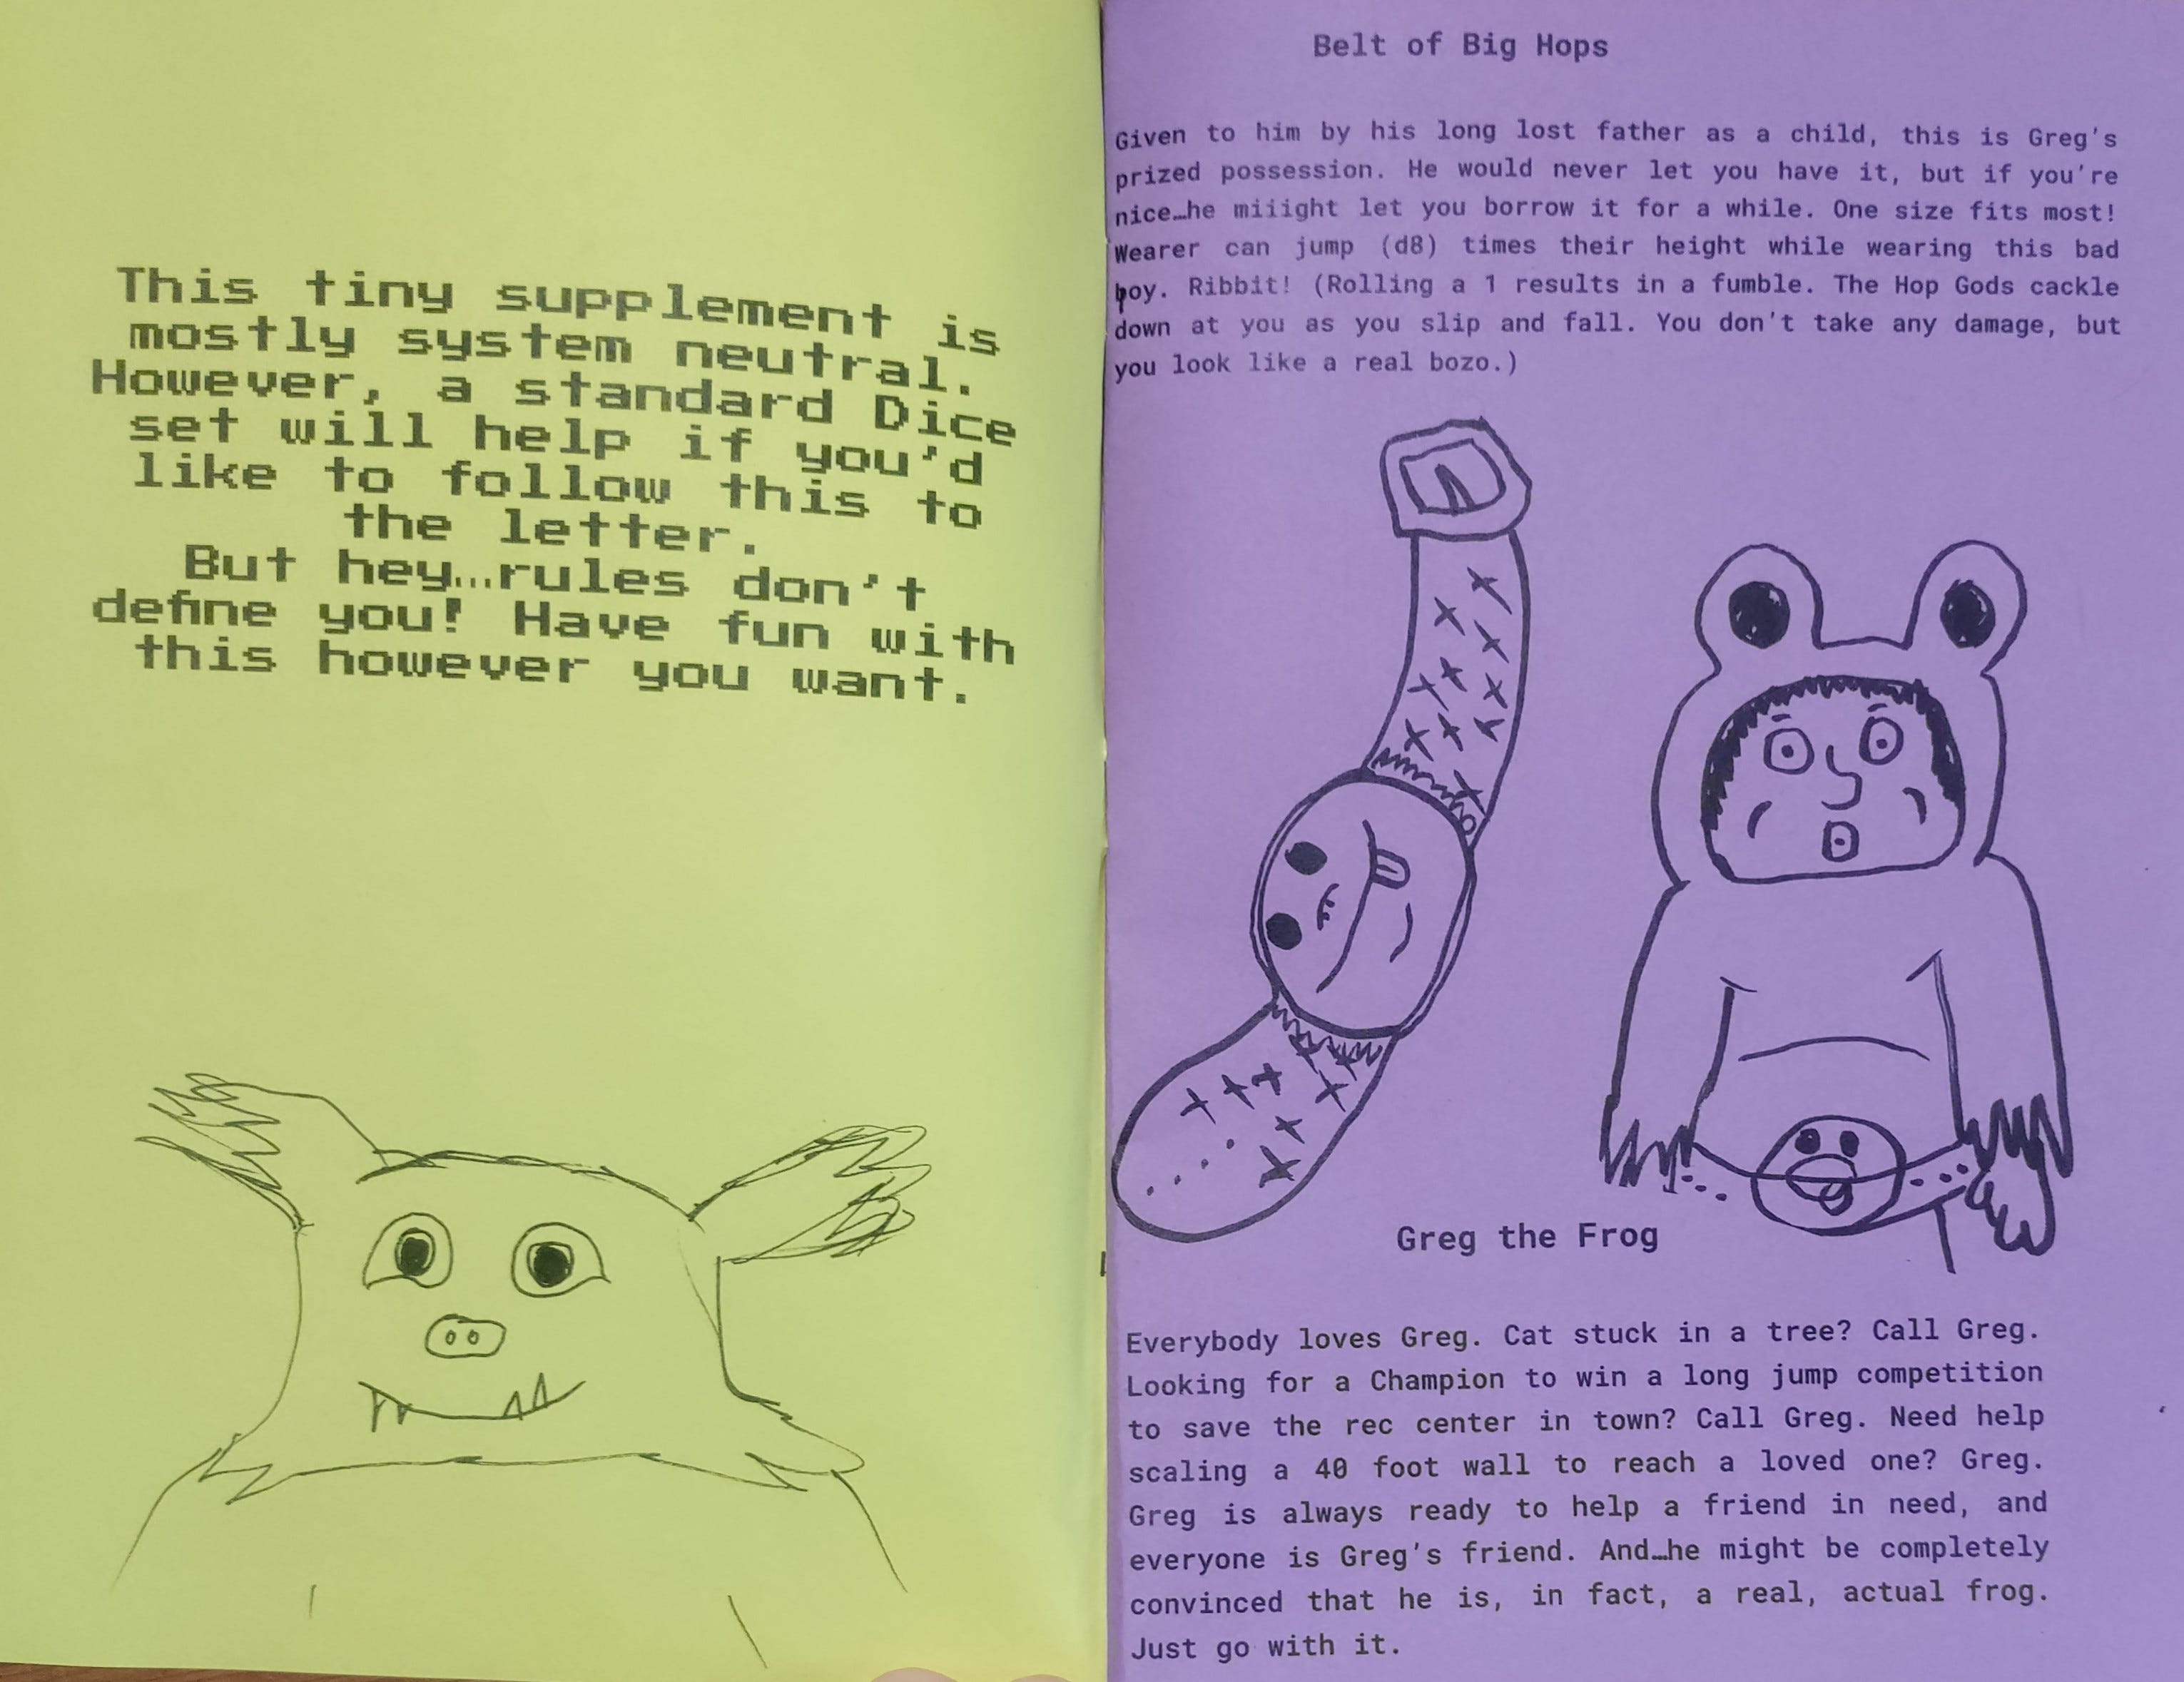 This tiny supplement is
mostly system neutral.
However, a standard Dice
set will help if you'd
like to follow this to
the letter.
But hey…rules don't
define you! Have fun with
this however you want.
Belt of Big Hops
Given to him by his long lost father as a child, this is Greg's
prized possession. He would never let you have it, but if you're
nice…he miiight let you borrow it for a while. One size fits most!
Wearer can jump (d8) times their height while wearing this bad
boy. Ribbit! (Rolling a 1 results in a fumble. The Hop Gods cackle
down at you as you slip and fall. You don't take any damage, but
you look like a real bozo.)
Greg the Frog
Everybody loves Greg. Cat stuck in a tree? Call Greg.
Looking for a Champion to win a long jump competition
to save the rec center in town? Call Greg. Need help
scaling a 40 foot wall to reach a loved one? Greg.
Greg is always ready to help a friend in need, and
everyone is Greg's friend. And…he might be completely
convinced that he is, in fact, a real, actual frog.
Just go with it.